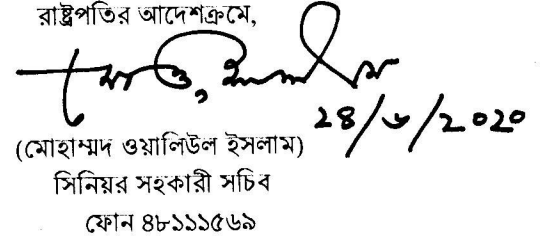 রাষ্ট্রপতির আদেশক্রমে,
২৪/৬/২০২০
(মোহাম্মদ ওয়ালিউল ইসলাম)
সিনিয়র সহকারী সচিব
ফোন ৪৮১১১৫৬৯